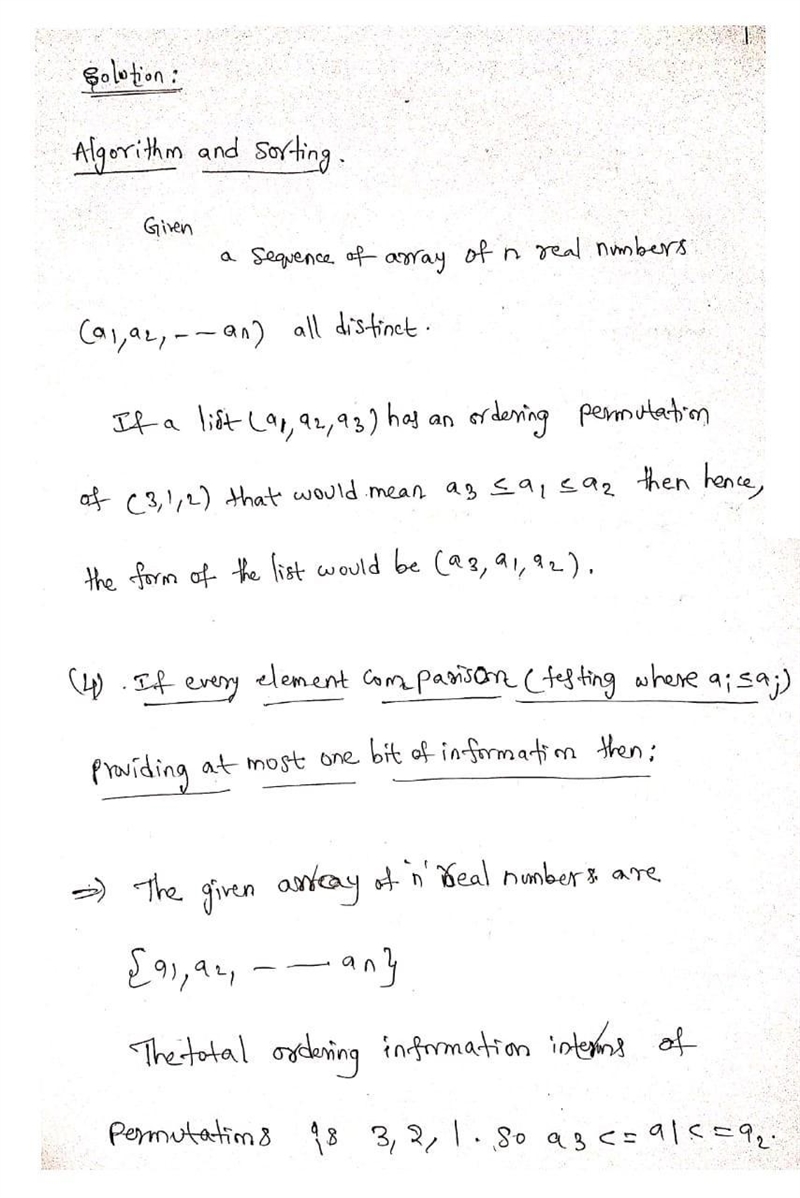 1
Solution:
Algorithm and Sorting.
Given
a sequence of array of n real numbers
(a1, a2, -- an) all distinct.
If a list (a1, a2, a3) has an ordering permutation
of (3,1,2) that would mean a3 ≤ a1 ≤ a2 then hence,
the form of the list would be (a3, a1, a2).
(4). If every element comparison (testing where ai ≤ aj)
providing at most one bit of information then;
=> The given array of 'n' real numbers are
{a1, a2, -- an}
The total ordering information interms of
Permutations is 3, 2, 1. So a3 <= a1 <= a2.